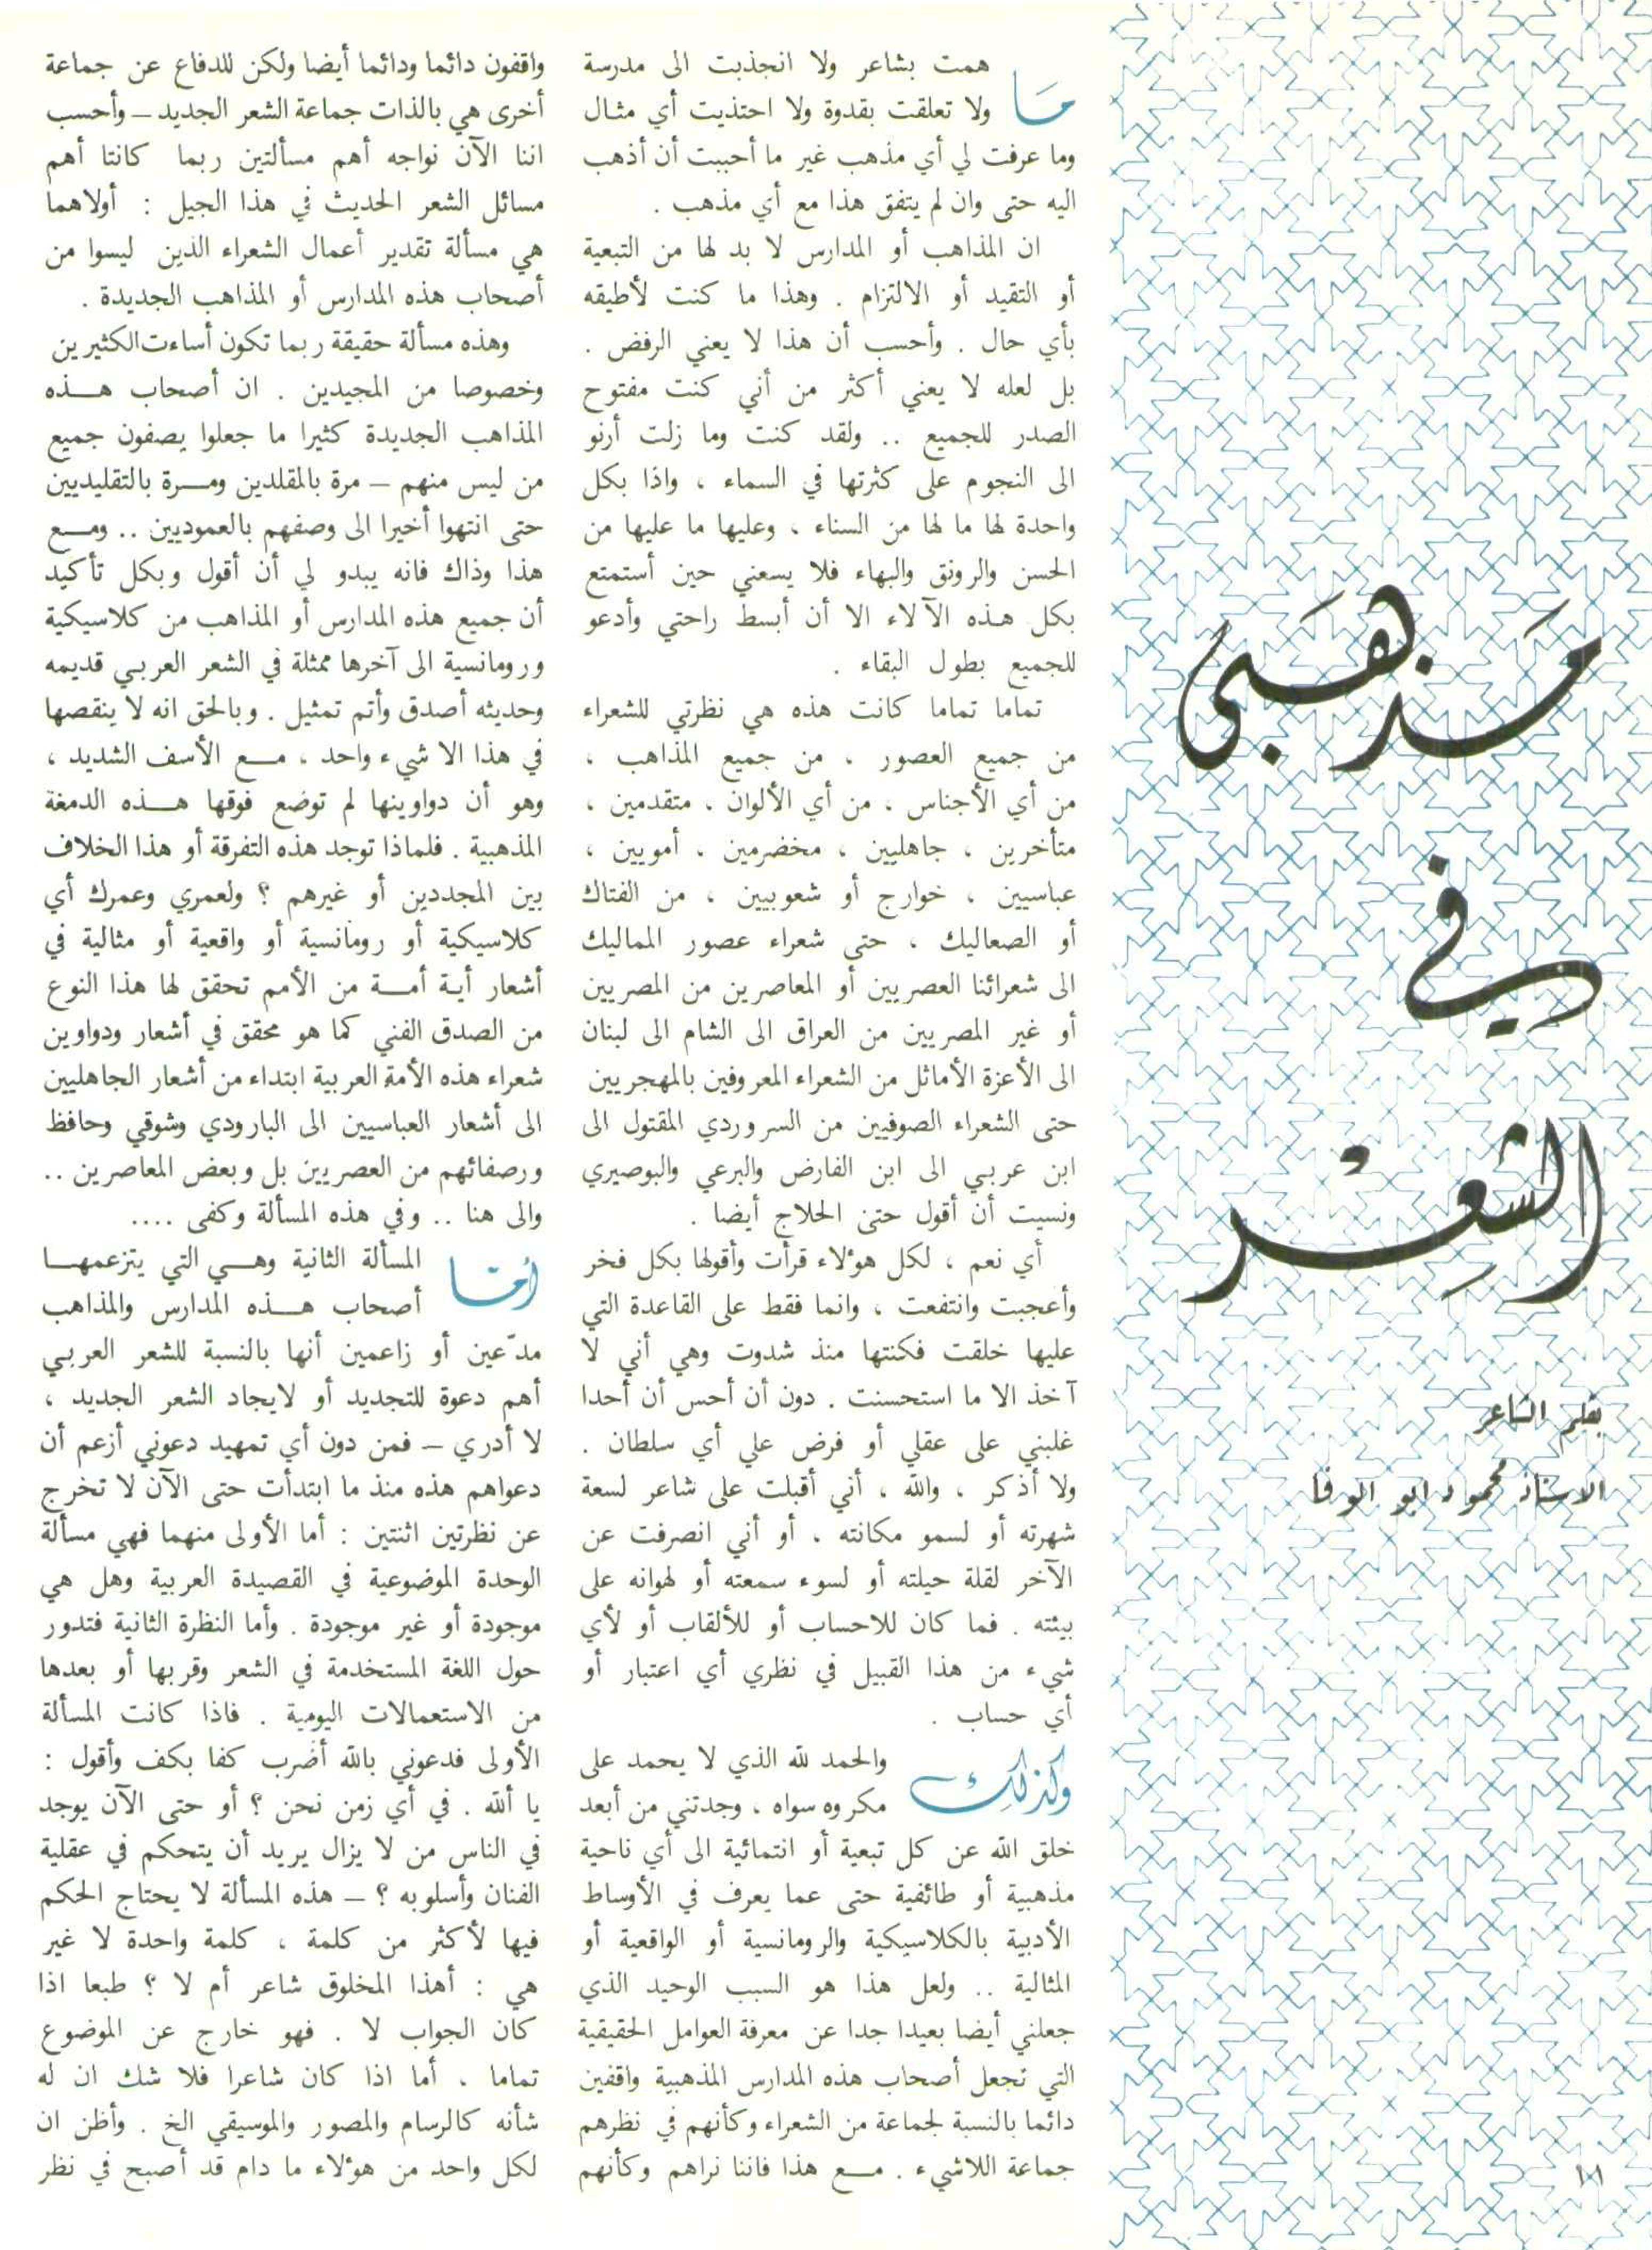 مذهبي
في
الشعر
بقلم الشاعر
الاستاذ محمود ابو الوفا
ما همت بشاعر ولا انجذبت الى مدرسة
ولا تعلقت بقدوة ولا احتذيت أي مثال
وما عرفت لي أي مذهب غير ما أحببت أن أذهب
اليه حتى وان لم يتفق هذا مع أي مذهب .
ان المذاهب أو المدارس لا بد لها من التبعية
أو التقيد أو الالتزام . وهذا ما كنت لأطيقه
بأي حال . وأحسب أن هذا لا يعني الرفض .
بل لعله لا يعني أكثر من أني كنت مفتوح
الصدر للجميع .. ولقد كنت وما زلت أرنو
الى النجوم على كثرتها في السماء ، واذا بكل
واحدة لها ما لها من السناء ، وعليها ما عليها من
الحسن والرونق والبهاء فلا يسعني حين أستمتع
بكل هذه الآلاء الا أن أبسط راحتي وأدعو
للجميع بطول البقاء .
تماما تماما كانت هذه هي نظرتي للشعراء
من جميع العصور ، من جميع المذاهب ،
من أي الأجناس ، من أي الألوان ، متقدمين ،
متأخرين ، جاهليين ، مخضرمين ، أمويين ،
عباسيين ، خوارج أو شعوبيين ، من الفتاك
أو الصعاليك ، حتى شعراء عصور المماليك
الى شعرائنا العصريين أو المعاصرين من المصريين
أو غير المصريين من العراق الى الشام الى لبنان
الى الأعزة الأماثل من الشعراء المعروفين بالمهجريين
حتى الشعراء الصوفيين من السروردي المقتول الى
ابن عربي الى ابن الفارض والبرعي والبوصيري
ونسيت أن أقول حتى الحلاج أيضا .
أي نعم ، لكل هؤلاء قرأت وأقولها بكل فخر
وأعجبت وانتفعت ، وانما فقط على القاعدة التي
عليها خلقت فكنتها منذ شدوت وهي أني لا
آخذ الا ما استحسنت . دون أن أحس أن أحدا
غلبني على عقلي أو فرض علي أي سلطان .
ولا أذكر ، والله ، أني أقبلت على شاعر لسعة
شهرته أو لسمو مكانته ، أو أني انصرفت عن
الآخر لقلة حيلته أو لسوء سمعته أو لهوانه على
بيئته . فما كان للاحساب أو للألقاب أو لأي
شيء من هذا القبيل في نظري أي اعتبار أو
أي حساب .
وكذلك والحمد لله الذي لا يحمد على
مكروه سواه ، وجدتني من أبعد
خلق الله عن كل تبعية أو انتمائية الى أي ناحية
مذهبية أو طائفية حتى عما يعرف في الأوساط
الأدبية بالكلاسيكية والرومانسية أو الواقعية أو
المثالية .. ولعل هذا هو السبب الوحيد الذي
جعلني أيضا بعيدا جدا عن معرفة العوامل الحقيقية
التي تجعل أصحاب هذه المدارس المذهبية واقفين
دائما بالنسبة لجماعة من الشعراء وكأنهم في نظرهم
جماعة اللاشيء . مع هذا فاننا نراهم وكأنهم
واقفون دائما ودائما أيضا ولكن للدفاع عن جماعة
أخرى هي بالذات جماعة الشعر الجديد – وأحسب
اننا الآن نواجه أهم مسألتين ربما كانتا أهم
مسائل الشعر الحديث في هذا الجيل : أولاهما
هي مسألة تقدير أعمال الشعراء الذين ليسوا من
أصحاب هذه المدارس أو المذاهب الجديدة .
وهذه مسألة حقيقة ربما تكون أساءت الكثيرين
وخصوصا من المجيدين . ان أصحاب هذه
المذاهب الجديدة كثيرا ما جعلوا يصفون جميع
من ليس منهم – مرة بالمقلدين ومرة بالتقليديين
حتى انتهوا أخيرا الى وصفهم بالعموديين .. ومع
هذا وذاك فانه يبدو لي أن أقول وبكل تأكيد
أن جميع هذه المدارس أو المذاهب من كلاسيكية
ورومانسية الى آخرها ممثلة في الشعر العربي قديمه
وحديثه أصدق وأتم تمثيل . وبالحق انه لا ينقصها
في هذا الا شيء واحد ، مع الأسف الشديد ،
وهو أن دواوينها لم توضع فوقها هذه الدمغة
المذهبية . فلماذا توجد هذه التفرقة أو هذا الخلاف
بين المجددين أو غيرهم ؟ ولعمري وعمرك أي
كلاسيكية أو رومانسية أو واقعية أو مثالية في
أشعار أية أمة من الأمم تحقق لها هذا النوع
من الصدق الفني كما هو محقق في أشعار ودواوين
شعراء هذه الأمة العربية ابتداء من أشعار الجاهليين
الى أشعار العباسيين الى البارودي وشوقي وحافظ
ورصفائهم من العصريين بل وبعض المعاصرين ..
والى هنا .. وفي هذه المسألة وكفى ....
أما المسألة الثانية وهي التي يتزعمها
أصحاب هذه المدارس والمذاهب
مدّعين أو زاعمين أنها بالنسبة للشعر العربي
أهم دعوة للتجديد أو لايجاد الشعر الجديد ،
لا أدري – فمن دون أي تمهيد دعوني أزعم أن
دعواهم هذه منذ ما ابتدأت حتى الآن لا تخرج
عن نظرتين اثنتين : أما الأولى منهما فهي مسألة
الوحدة الموضوعية في القصيدة العربية وهل هي
موجودة أو غير موجودة . وأما النظرة الثانية فتدور
حول اللغة المستخدمة في الشعر وقربها أو بعدها
من الاستعمالات اليومية . فاذا كانت المسألة
الأولى فدعوني بالله أضرب كفا بكف وأقول :
يا ألله . في أي زمن نحن ؟ أو حتى الآن يوجد
في الناس من لا يزال يريد أن يتحكم في عقلية
الفنان وأسلوبه ؟ – هذه المسألة لا يحتاج الحكم
فيها لأكثر من كلمة ، كلمة واحدة لا غير
هي : أهذا المخلوق شاعر أم لا ؟ طبعا اذا
كان الجواب لا . فهو خارج عن الموضوع
تماما ، أما اذا كان شاعرا فلا شك ان له
شأنه كالرسام والمصور والموسيقي الخ . وأظن ان
لكل واحد من هؤلاء ما دام قد أصبح في نظر